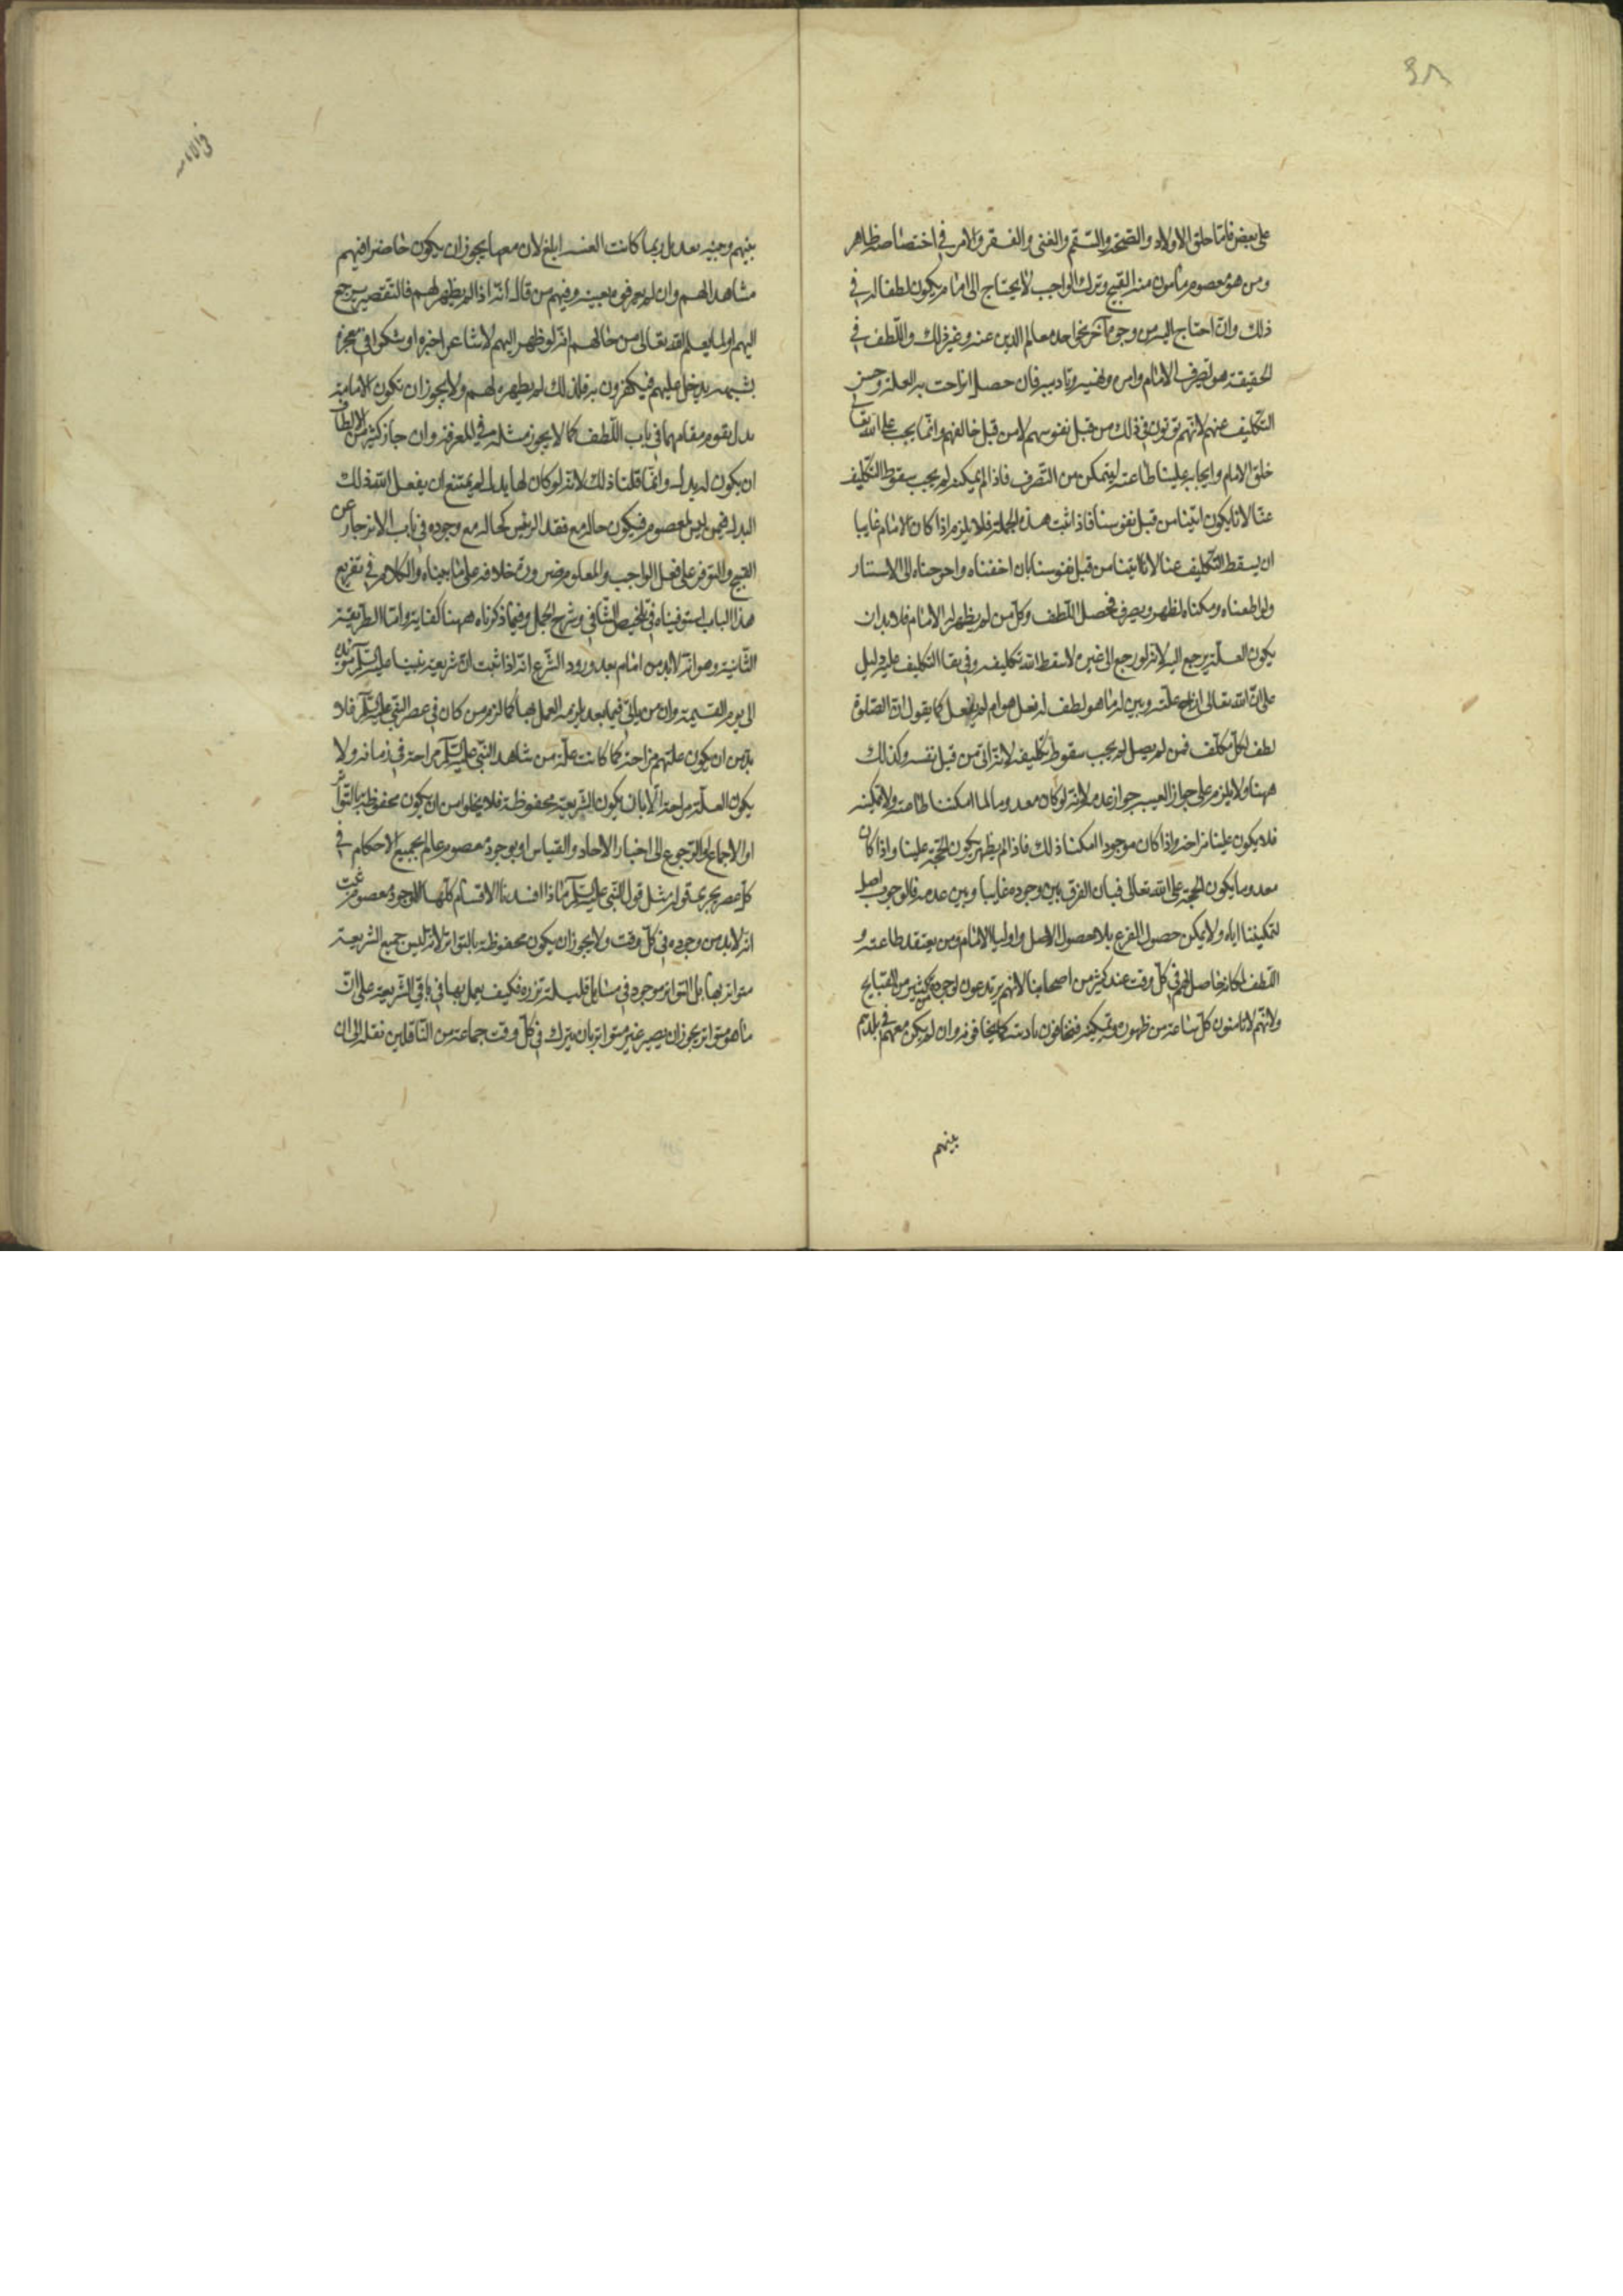 ٣٨
على بعض فامّا خلق الاولاد والصّحّة والسّقم والغنى والفقر والامر في اختصاصه ظاهر
ومن هو معصوم مأمون منه القبيح وترك الواجب لا يحتاج الى امام يكون لطفا له في
ذلك وان احتاج اليه من وجوه آخر نحو اخذ معالم الدين عنه وغير ذلك واللّطف في
الحقيقة هو تصرف الامام وامره ونهيه وتاديبه فان حصل انزاحت به العلة وحسن
التكليف عنهم لانهم يؤتون في ذلك من قبل نفوسهم لا من قبل خالقهم وانّما يجب على الله تعالى
خلق الامام وايجابه علينا طاعته ليتمكن من التّصرف فاذا لم يمكنه لم يجب سقوط التّكليف
عنّا لانا يكون اتينا من قبل نفوسنا فاذا ثبت هذه الجملة فلا يلزم اذا كان الامام غايبا
ان يسقط التّكليف عنا لانا اتينا من قبل نفوسنا بان اخفناه واحوجناه الى الاستتار
ولو اطعناه ومكناه لظهر وتصرف فحصل اللّطف وكل من لم يظهر له الامام فلا بد ان
يكون العلّة يرجع اليه لانه لو رجع الى غيره لاسقط الله تكليفه وفي بقا التكليف عليه دليل
على ان الله تعالى ازاح علّته وبين له ما هو لطف له فعل هو ام لم يفعل كما يقول ان الصّلوة
لطف لكل مكلّف فمن لم يصل لم يجب سقوط تكليفه لانّه اتى من قبل نفسه وكذلك
ههنا ولا يلزم على جواز الغيبه جواز عدمه لانه لو كان معدوما لما امكننا طاعته ولا تمكينه
فلا يكون علينا مزاحة واذا كان موجودا امكننا ذلك فاذا لم يظهر يكون الحجّة علينا واذا كان
معدوما يكون الحجة على الله تعالى فبان الفرق بين وجوده غايبا وبين عدمه فالوجود اصل
لتمكيننا اياه ولا يمكن حصول الفرع بلا حصول الاصل واولياء الامام ومن يعتقد طاعته و
اللّطف لمكانه حاصل لهم في كلّ وقت عند كثير من اصحابنا لانهم يرتدعون لوجوده كثير من القبايح
ولانّهم لا يامنون كلّ ساعة من ظهوره وتمكينه فيخافون تاديبه كما يخافونه وان لم يكن معهم في بلدهم
بينهم
بينهم وبينه بعد بل ربما كانت الغيبه ابلغ لان معها يجوز ان يكون حاضرا فيهم
مشاهدا لهم وان لم يعرفوه بعينه وفيهم من قال انّه اذا لم يظهر لهم فالتّقصير يرجع
اليهم او لما يعلم الله تعالى من حالهم انّه لو ظهر اليهم لاشاعوا خبره او شكوا في معجزه
بشبهه يدخل عليهم فيكفرون به فلذلك لم يظهر لهم ولا يجوز ان يكون للامامة
بدل يقوم مقامها في باب اللّطف كما لا يجوز مثله في المعرفة وان جاز كثير من الالطاف
ان يكون له بدل وانّما قلنا ذلك لانّه لو كان لها بدل لم يمتنع ان يفعل الله ذلك
البدل فيمن ليس لمعصوم فيكون حاله مع فقد الرئيس كحاله مع وجوده في باب الانزجار عن
القبيح والتوفر على فعل الواجب والمعلوم ضرورة خلافه على ما بيناه والكلام في تفريع
هذا الباب استوفيناه في تلخيص الشّافي وشرح الجمل وفيما ذكرناه ههنا كفاية وامّا الطّريقة
الثّانية وهو انّه لا بد من امام بعد ورود الشّرع انّه اذا ثبت انّ شريعة نبينا عليه السّلم مؤبّدة
الى يوم القيمة وان من ياتي فيما بعد يلزمه العمل بها كما لزم من كان في عصر النّبي عليه السّلم فلا
بدّ من ان يكون علتهم مزاحة كما كانت علّة من شاهد النّبي عليه السّلم مزاحة في زمانه ولا
يكون العلّة مزاحة الّا بان يكون الشّريعة محفوظة فلا يخلو من ان يكون محفوظة بالتّواتر
او الاجماع او الرّجوع الى اخبار الاحاد والقياس او بوجود معصوم عالم بجميع الاحكام في
كل عصر يجري قوله مثل قول النّبي عليه السّلم فاذا افسدنا الاقسام كلّها الا وجود معصوم ثبت
انّه لا بد من وجوده في كلّ وقت ولا يجوز ان يكون محفوظة بالتّواتر لانّه ليس جميع الشريعة
متواتر بها بل التواتر موجود في مسايل قليلة نزرة فكيف يعمل بها في باقي الشّريعة على انّ
ما هو متواتر يجوز ان يصير غير متواتر بان يترك في كلّ وقت جماعة من النّاقلين نقله الى ان